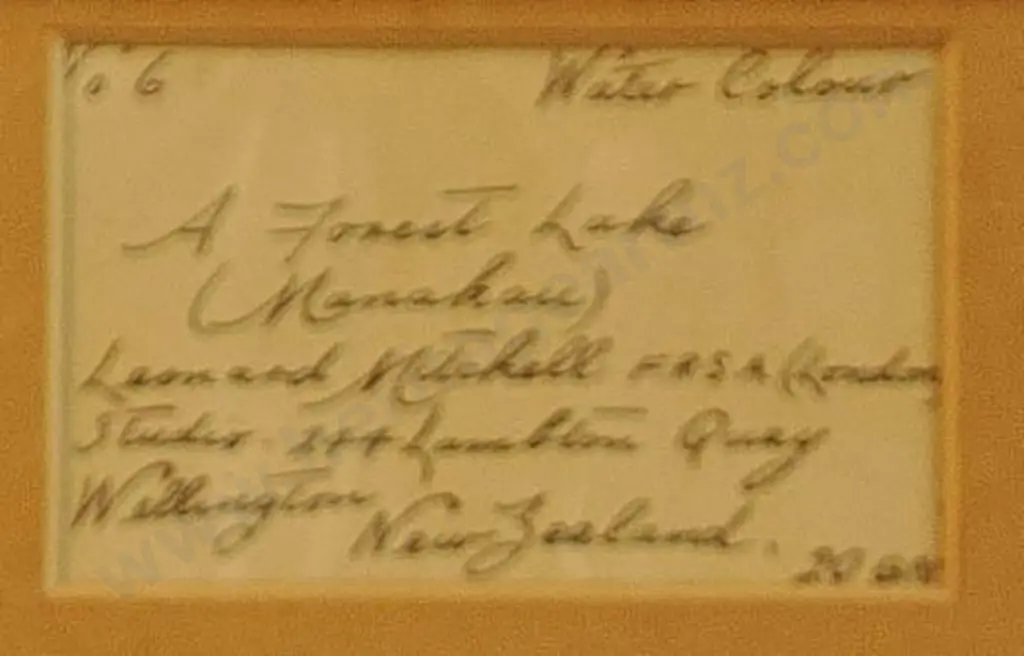 No 6 Water Colour
A Forest Lake
(Manakau)
Leonard Mitchell F.R.S.A (London)
Studio 244 Lambton Quay
Wellington
New Zealand.